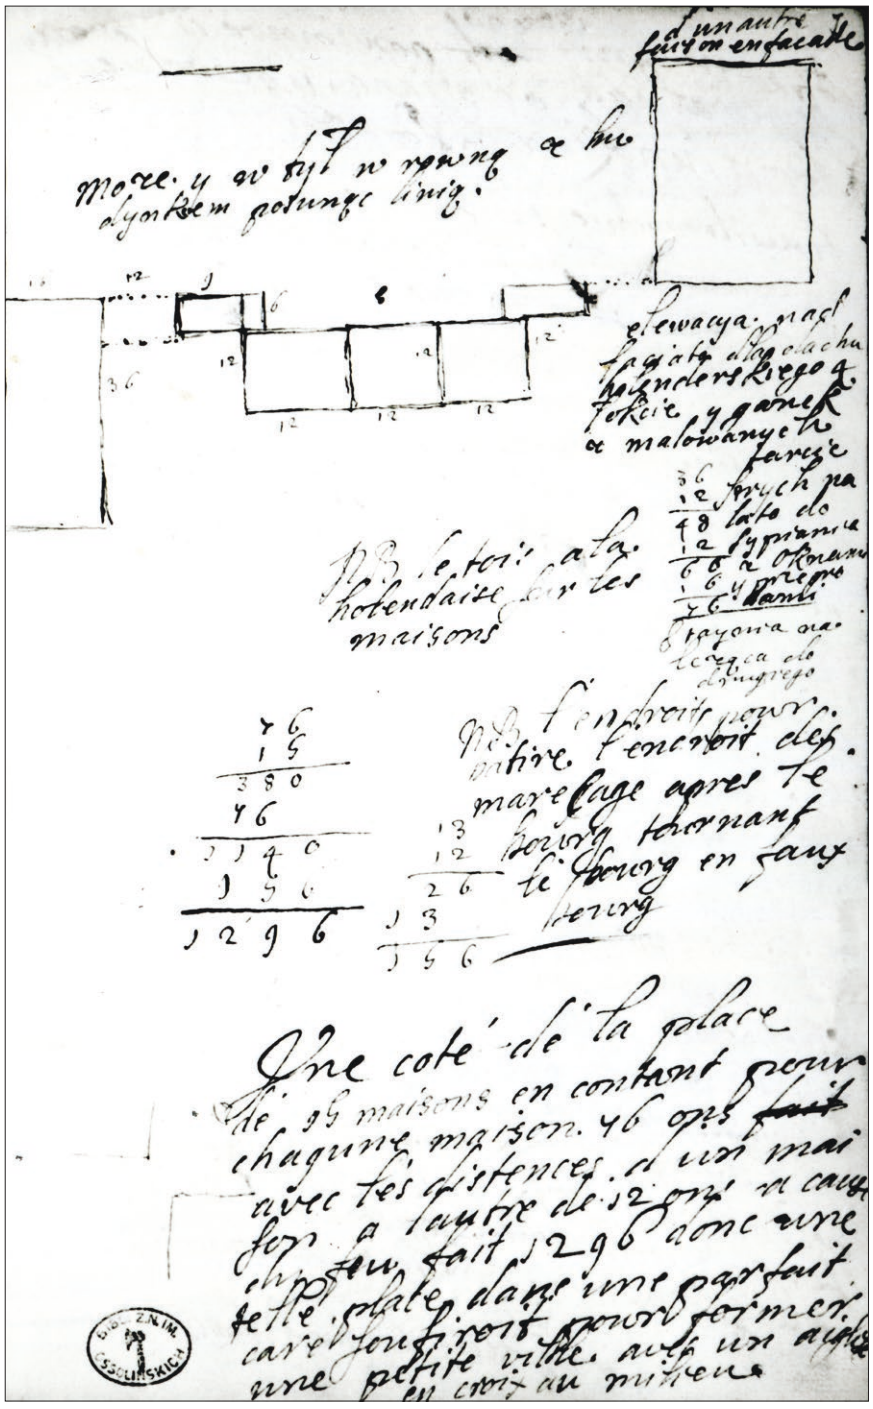 d'un autre
faison en facade
more y w tył w rowną z bu
dynkem posunąc linią.
12
9
6
36
12
12
12
12
12
12
elewacya nad
faciatę dla dachu
holenderskiego 4
łokcie y ganek
z malowanych
36
12
48
12
66
16
76
lato do
sypiania
z oknami
8 tayonia na
leząca do
drugiego
NB le toit a la
holendaise sur les
maisons
76
15
380
76
1140
156
1296
NB l'endroits pour
bâtire l'endroit des
marecage apres le
bourg tournant
le bourg en faux
bourg
13
12
26
13
156
Une coté de la place
de 15 maisons en contant pour
chaqune maison 76 ons fait
avec les distences d un mai
son a lautre de 12 ons a cause
du feu fait 1296 donc une
telle place dans une parfait
caré soufiroit pour former
une petite ville avec un
en croix au milieu
BIBL. Z. N. IM.
OSSOLIŃSKICH